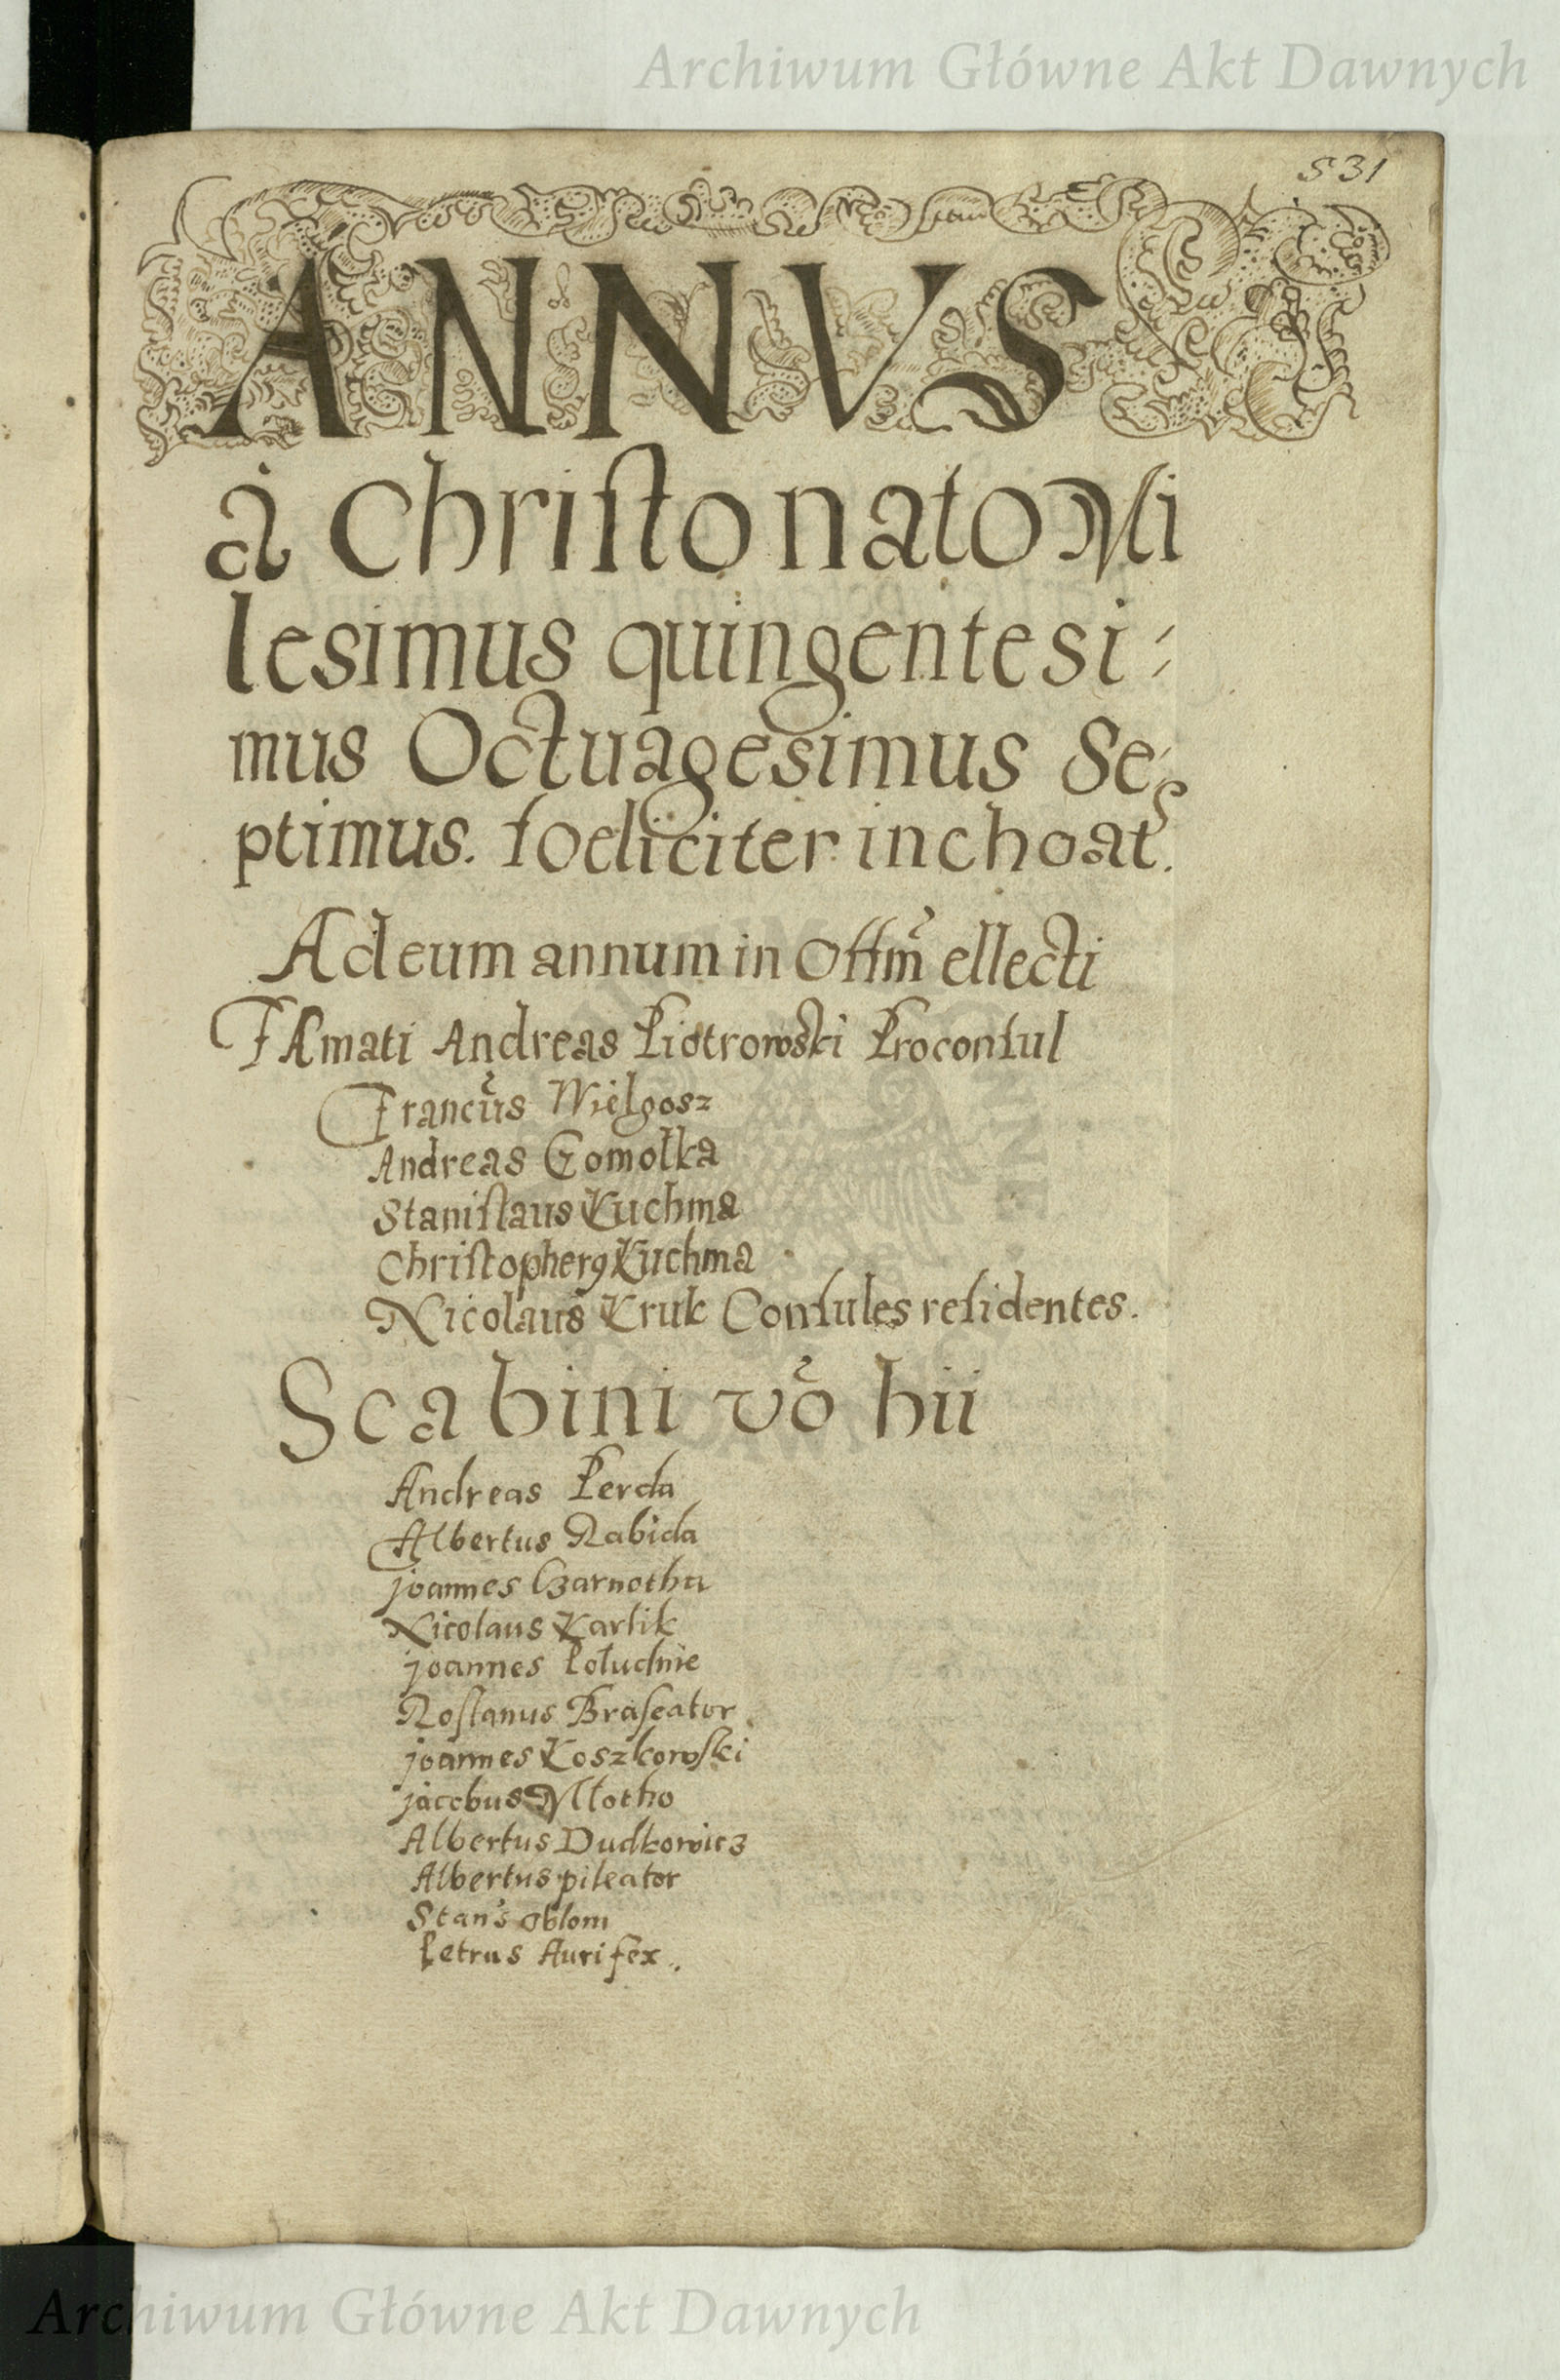 Archiwum Główne Akt Dawnych
531
ANNVS
à Christo nato Mi
lesimus quingentesi:
mus Octuagesimus Se:
ptimus. foeliciter inchoat.
Ad eum annum in Offm̃ ellecti
FAmati Andreas Piotrowski Proconsul
Francus Wielgosz
Andreas Gomolka
Stanislaus Kuchma
Christopherꝰ Kuchma
Nicolaus Kruk Consules residentes.
Scabini vo hii
Andreas Perda
Albertus Rabida
joannes Czarnotha
Nicolaus Karlik
joannes Poludnie
Roslanus Braseator
joannes Koszkowski
jacobus Mlotho
Albertus Dudkowicz
Albertus pileator
Stans oblom
Petrus Aurifex.
Archiwum Główne Akt Dawnych